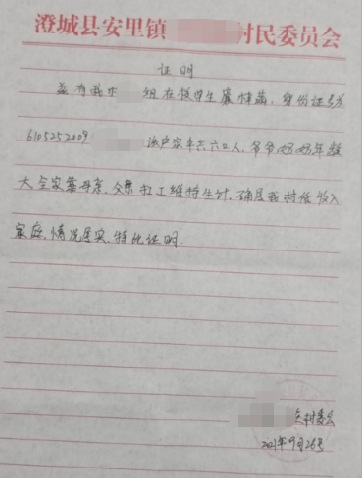 澄城县安里镇 村民委员会
证明
兹有我村 组在校学生 身份证号为
6105252009 该户家中共六口人,爷爷,奶奶年龄
大全家靠母亲,父亲打工维持生计,确属我村低收入
家庭,情况属实,特此证明
村委会
2021年9月26号